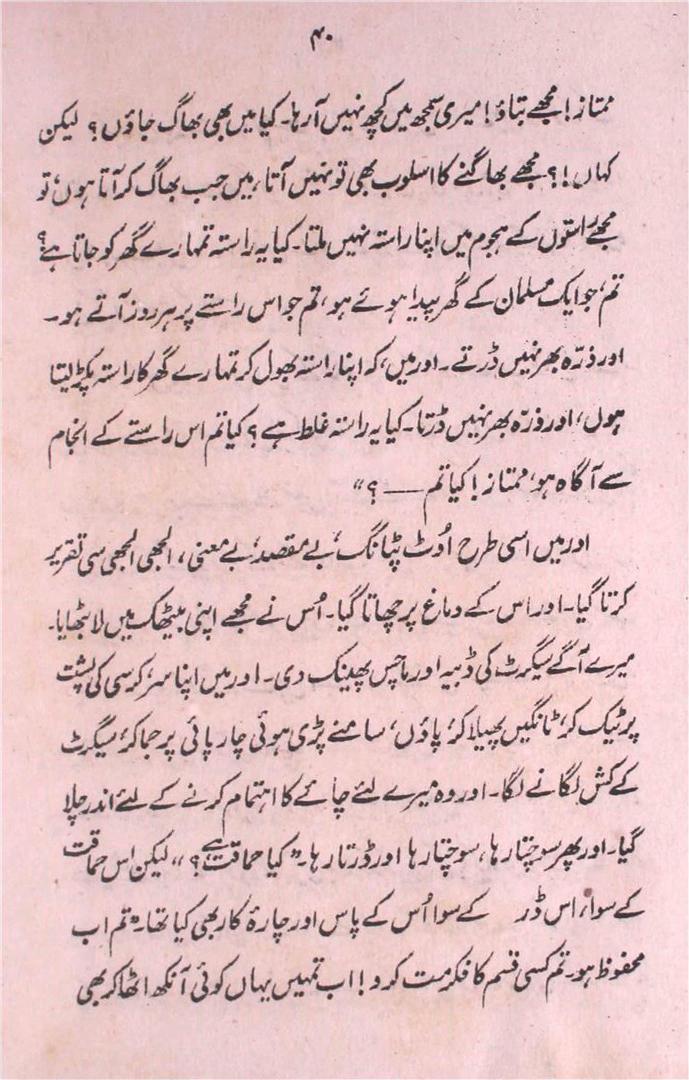 ۴۰
ممتاز! مجھے بتاؤ! میری سمجھ میں کچھ نہیں آ رہا۔ کیا میں بھی بھاگ جاؤں؟ لیکن
کہاں!؟ مجھے بھاگنے کا اسلوب بھی تو نہیں آتا، میں جب بھاگ کر آتا ہوں، تو
مجھے راستوں کے ہجوم میں اپنا راستہ نہیں ملتا۔ کیا یہ راستہ تمہارے گھر کو جاتا ہے؟
تم، جو ایک مسلمان کے گھر پیدا ہوئے ہو، تم جو اس راستے پر ہر روز آتے ہو۔
اور ذرّہ بھر نہیں ڈرتے۔ اور میں، کہ اپنا راستہ بھول کر تمہارے گھر کا راستہ پکڑ لیتا
ہوں، اور ذرّہ بھر نہیں ڈرتا۔ کیا یہ راستہ غلط ہے؟ کیا تم اس راستے کے انجام
سے آگاہ ہو، ممتاز! کیا تم ——؟“
اور میں اسی طرح اُوٹ پٹانگ، بے مقصد، بے معنی، الجھی الجھی سی تقریر
کرتا گیا۔ اور اس کے دماغ پر چھاتا گیا۔ اُس نے مجھے اپنی بیٹھک میں لا بٹھایا۔
میرے آگے سیگرٹ کی ڈبیہ اور ماچس پھینک دی۔ اور میں اپنا سر، کرسی کی پشت
پر ٹیک کر، ٹانگیں پھیلا کر، پاؤں، سامنے پڑی ہوئی چارپائی پر جما کر، سیگرٹ
کے کش لگانے لگا۔ اور وہ میرے لئے چائے کا اہتمام کرنے کے لئے اندر چلا
گیا۔ اور پھر سوچتا رہا، سوچتا رہا اور ڈرتا رہا۔ ”کیا حماقت ہے؟“ لیکن اس حماقت
کے سوا، اس ڈر کے سوا اُس کے پاس اور چارۂ کار بھی کیا تھا۔ ”تم اب
محفوظ ہو۔ تم کسی قسم کا فکر مت کرو! اب تمہیں یہاں کوئی آنکھ اٹھا کر بھی